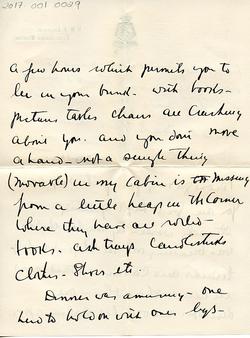 2017.001.0029
a few hours which permits you to
lie in your bunk. with books -
pictures tables chairs are crashing
about you. and you don't move
a hand - not a single thing
(movable) in my cabin is missing
from a little heap in the corner
where they have all rolled -
books. ash trays Candlesticks
Clothes - Shoes etc.
Dinner was amusing - one
had to hold on with ones legs -